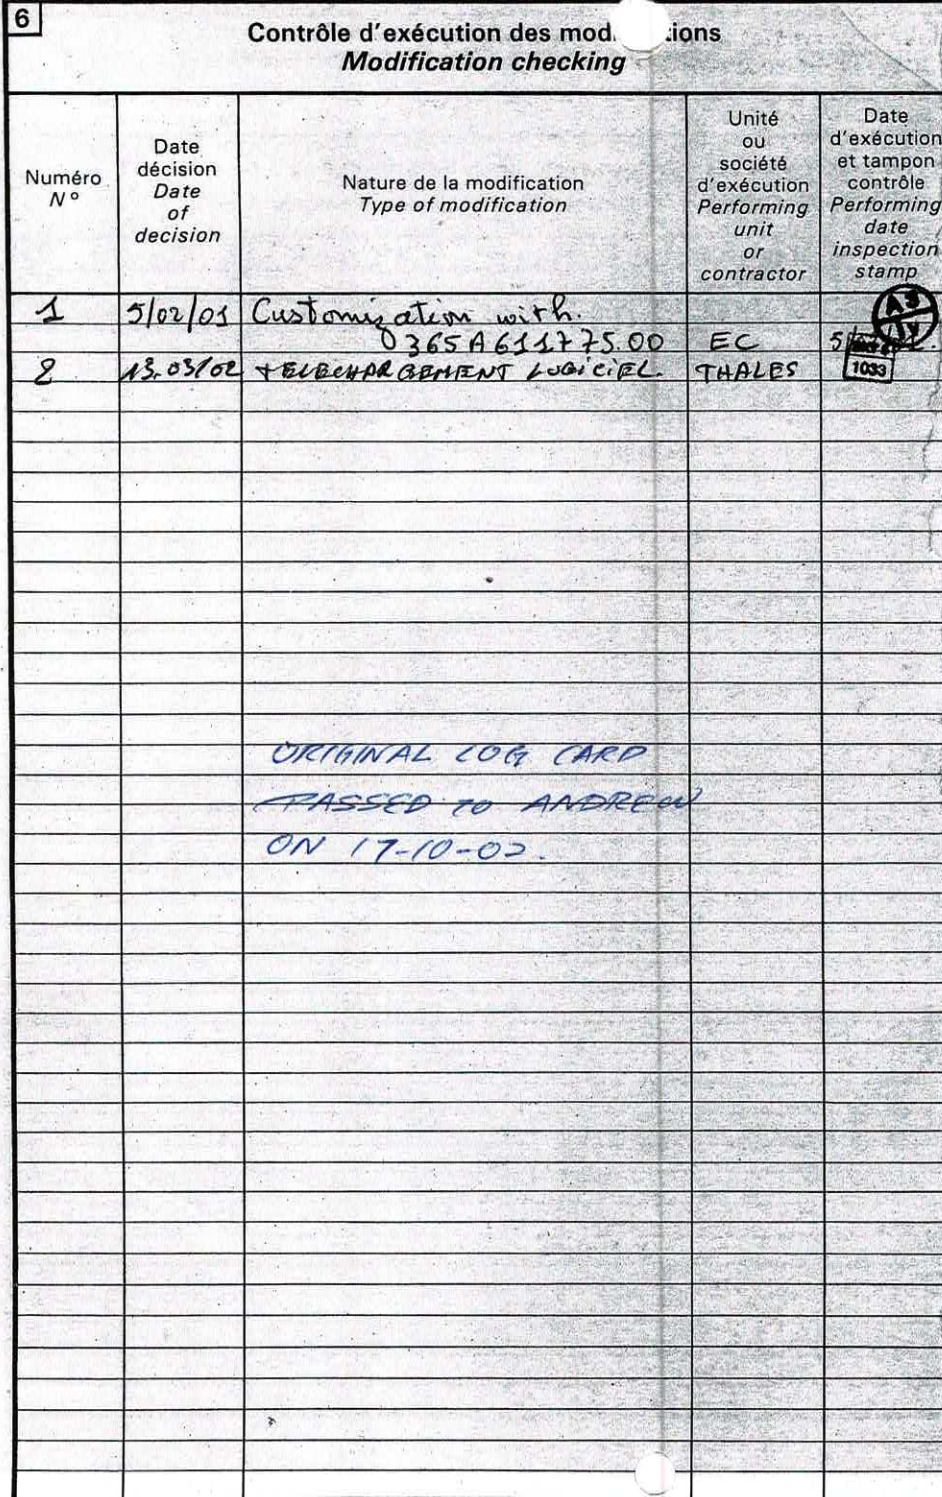 6
Contrôle d'exécution des mod
tions
Modification checking
Numéro
N°
Date
décision
Date
of
decision
Nature de la modification
Type of modification
Unité
ou
société
d'exécution
Performing
unit
or
contractor
Date
d'exécution
et tampon
contrôle
Performing
date
inspection
stamp
1 5/02/01 Customization with.
0365A611775.00 EC
2 13.03/02 TELECHARGEMENT LOGICIEL THALES 1033
ORIGINAL LOG CARD
PASSED TO ANDREW
ON 17-10-02.